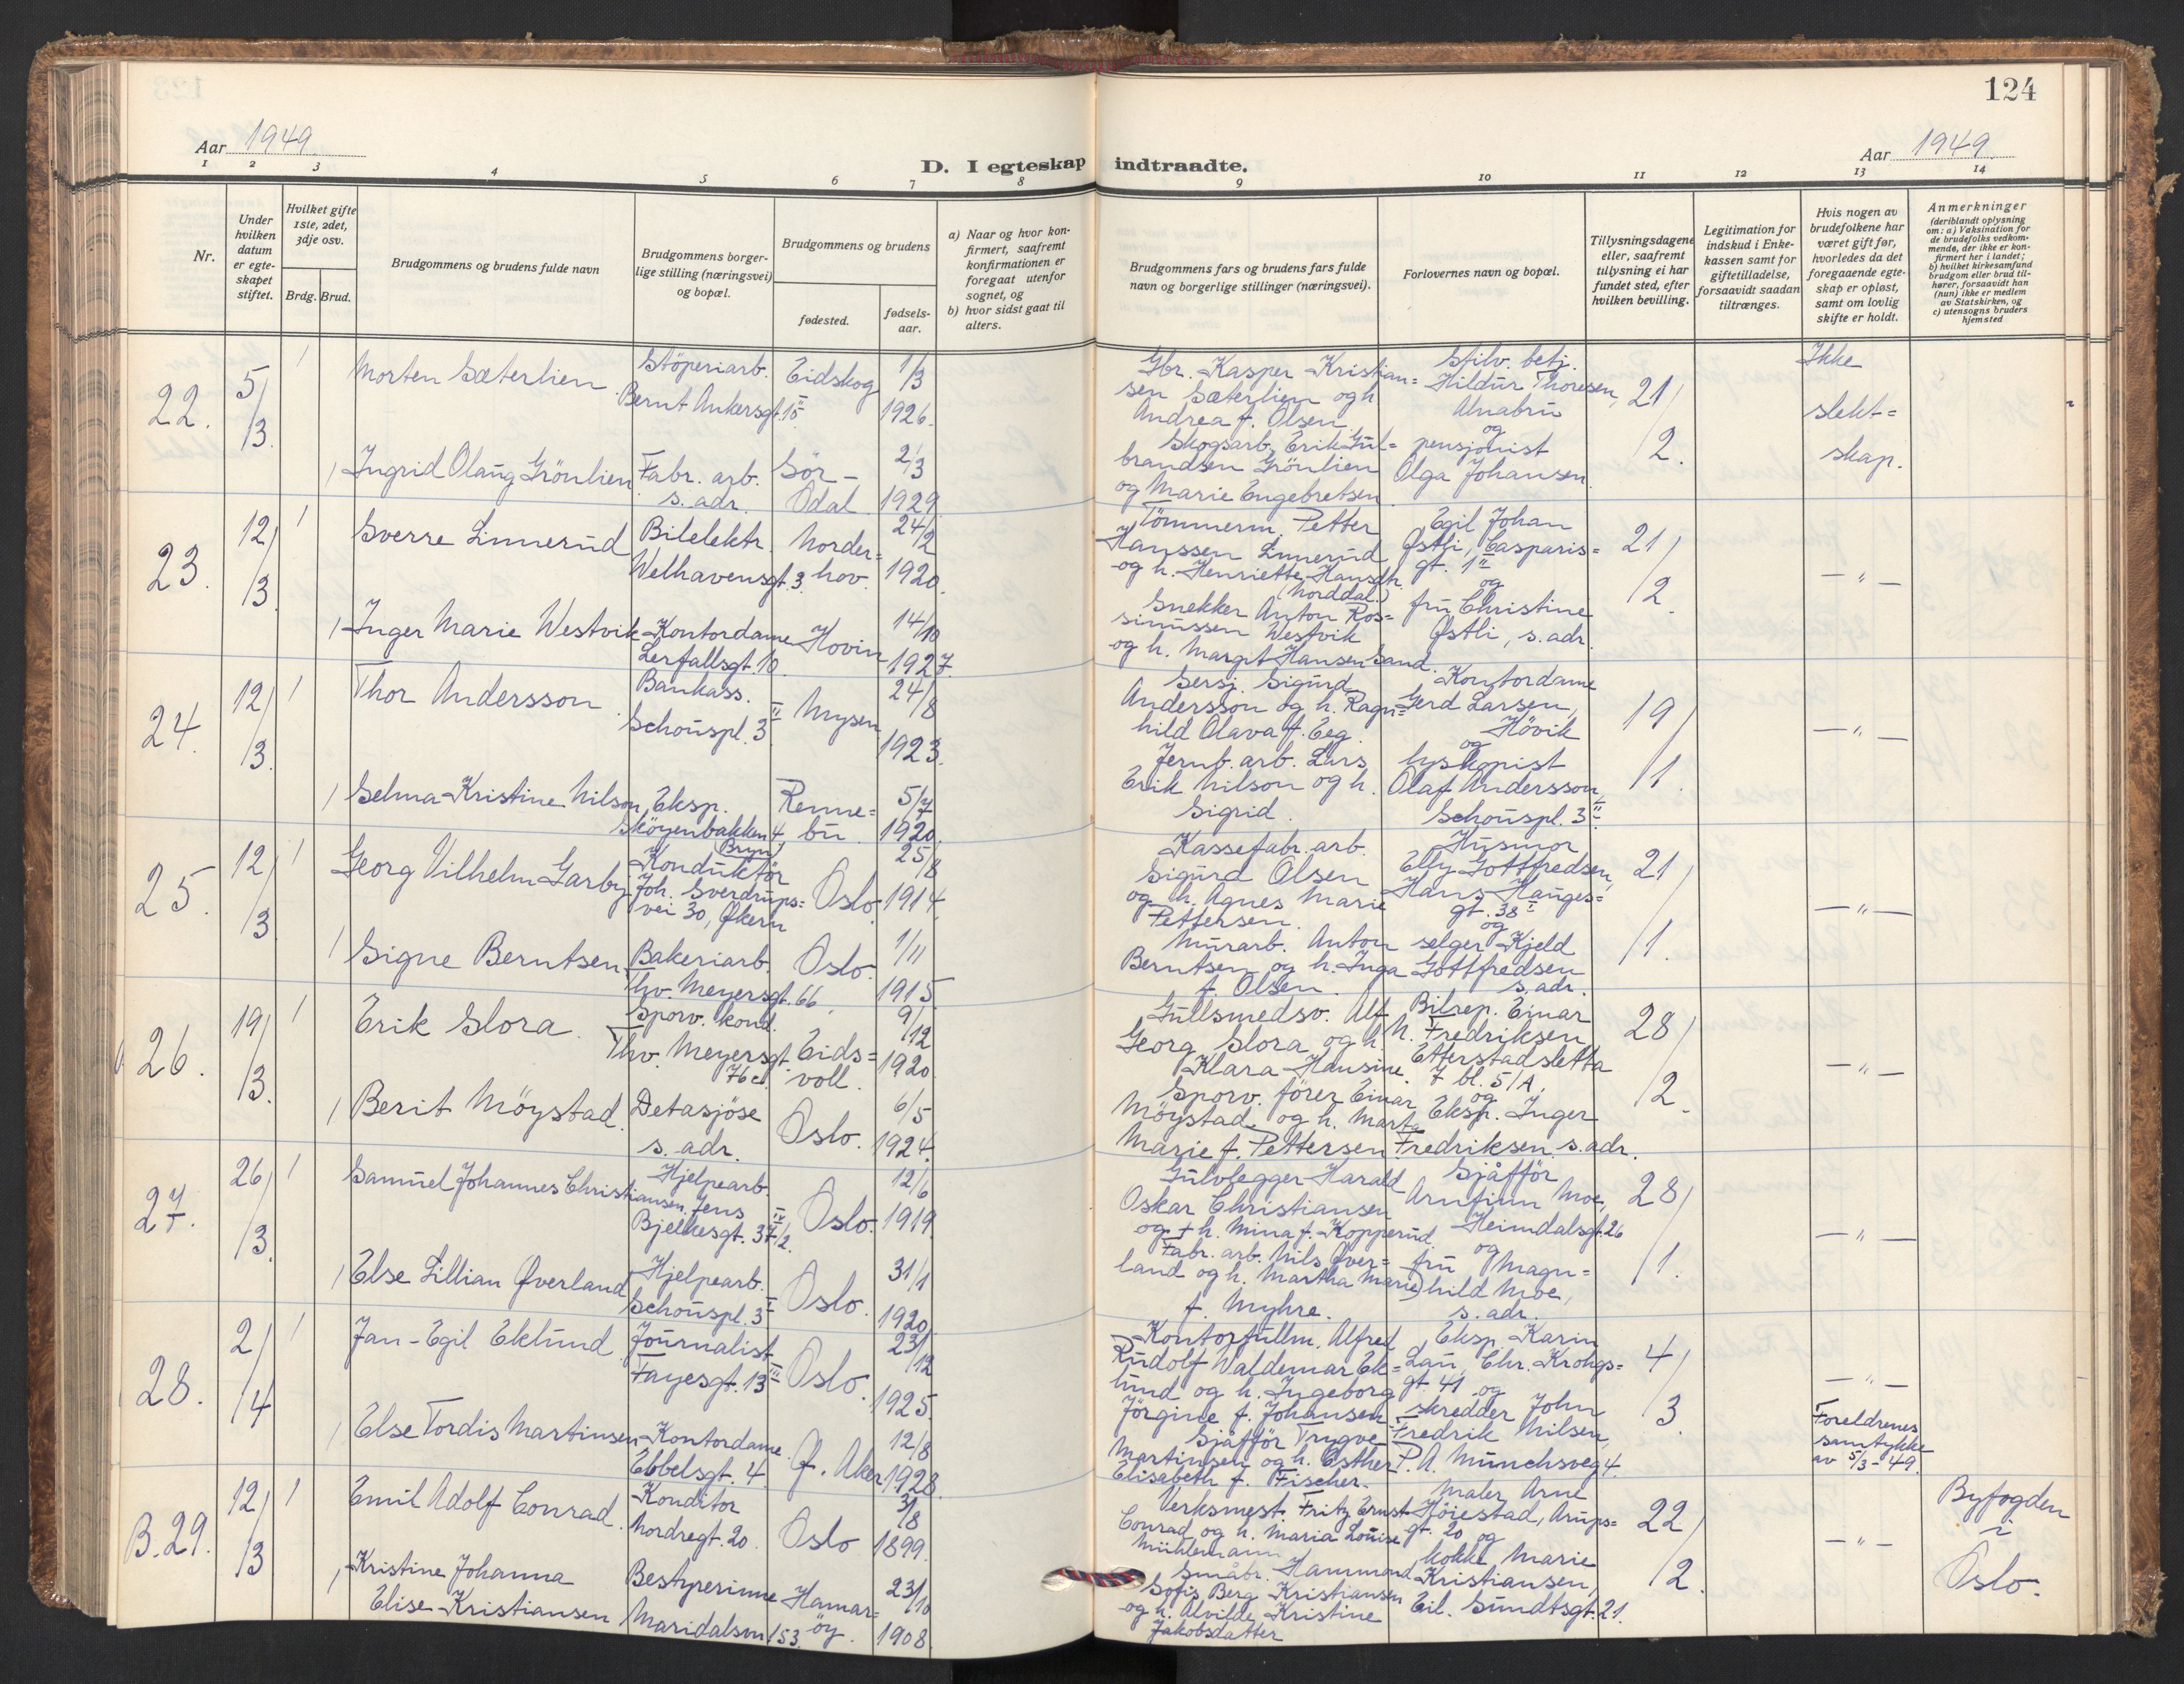 124
Aar 1949.
D. I egteskap indtraadte.
Aar 1949.
1 2 3 4 5 6 7 8 9 10 11 12 13 14
Nr.
Under hvilken datum er egteskapet stiftet.
Hvilket gifte 1ste, 2det, 3dje osv.
Brdg. Brud.
Brudgommens og brudens fulde navn
Brudgommens borgerlige stilling (næringsvei) og bopæl.
Brudgommens og brudens
fødested.
fødselsaar.
a) Naar og hvor konfirmert, saafremt konfirmationen er foregaat utenfor sognet, og
b) hvor sidst gaat til alters.
Brudgommens fars og brudens fars fulde navn og borgerlige stillinger (næringsvei).
Forlovernes navn og bopæl.
Tillysningsdagene eller, saafremt tillysning ei har fundet sted, efter hvilken bevilling.
Legitimation for indskud i Enkekassen samt for giftetilladelse, forsaavidt saadan tiltrænges.
Hvis nogen av brudefolkene har været gift før, hvorledes da det foregaaende egteskap er opløst, samt om lovlig skifte er holdt.
Anmerkninger
(deriblandt oplysning om: a) Vaksination for de brudefolks vedkommende, der ikke er konfirmert her i landet;
b) hvilket kirkesamfund brudgom eller brud tilhører, forsaavidt han (hun) ikke er medlem av Statskirken, og
c) utensogns bruders hjemsted
22. 5/3. 1
Morten Sæterlien
Støperiarb.
Bernt Ankersgt. 15 II
Eidskog
1/3
1926.
Gbr. Kasper Kristian=
sen Sæterlien og h
Andrea f. Olsen
Stilv. betj.
Hildur Thoresen,
Alnabru
og
21/2.
Ikke
slekt=
skap.
1 Ingrid Olaug Grönlien
Fabr. arb.
s. adr.
Sör-
Odal
2/3
1929.
Skogsarb. Erik Gul=
brandsen Grönlien
og Marie Engebretsen
pensjonist
Olga Johansen
23. 12/3. 1
Sverre Linnerud
Bilelektr.
Welhavensgt. 3
Norder=
hov
24/2
1920.
Tömmerm. Petter
Hanssen Linnerud
og h. Henriette Hansdtr.
(Norddal.)
Egil Johan
Østli, Casparis=
gt. 1 II
og
21/2.
— " —
1 Inger Marie Westvik
Kontordame
Lerfallsgt. 10.
Hovin
14/10
1927.
Snekker Anton Ros=
sinussen Westvik
og h. Margit Hansen Sand.
fru Christine
Østli, s. adr.
24. 12/3. 1
Thor Andersson
Bankass.
Schouspl. 3 II
Mysen
24/8
1923.
Sersj. Sigurd
Andersson og h. Ragn=
hild Olava f. Eeg.
Kontordame
Gerd Larsen,
Hövik
og
19/1.
— " —
1 Selma Kristine Nilson,
Eksp.
Skøyenbakken 4
(Bryn)
Renne=
bu
5/7
1920.
Jernb. arb. Lars
Erik Nilson og h.
Sigrid.
lyskopist
Olaf Andersson,
Schouspl. 3 II
25. 12/3. 1
Georg Vilhelm Garby
Konduktör
Joh. Sverdrups=
vei 30, Økern
Oslo.
25/8
1914.
Kassefabr. arb.
Sigurd Olsen
og h. Agnes Marie
Pettersen.
Husmor
Elly Gottfredsen,
Hans Hauges=
gt. 38 I
og
21/1.
— " —
1 Signe Berntsen.
Bakeriarb.
Thv. Meyersgt. 66
Oslo.
1/11
1915
Murarb. Anton
Berntsen og h. Inga
f. Olsen
selger Kjeld
Gottfredsen
s. adr.
26. 19/3. 1
Erik Slora.
Sporv. kond.
Thv. Meyersgt.
76 c.
Eids=
voll.
9/12
1920.
Gullsmedsv. Alf
Georg Slora og h.
Klara Hansine.
Bilrep. Einar
N. Fredriksen
Etterstadsletta
7 bl. 5/A.
og
28/2.
— " —
1 Berit Möystad.
Detasjöse
s. adr.
Oslo.
6/5
1924.
Sporv. förer Einar
Möystad. og h. Marta
Marie f. Pettersen
Eksp. Inger
Fredriksen s. adr.
27. 26/3. 1
Samuel Johannes Christiansen.
Hjelpearb.
Jens
Bjelkesgt. 37/2. IV
Oslo.
12/6
1919.
Gulvlegger Harald
Oskar Christiansen
og + h. Mina f. Kopperud
Sjåfför
Arnfinn Moe,
Heimdalsgt. 26
og
28/1.
— " —
1 Else Lillian Øverland
Hjelpearb.
Schouspl. 3 I
Oslo.
31/1
1920
Fabr. arb. Nils Över=
land og h. Martha Marie
f. Myhre.
fru Magn=
hild Moe,
s. adr.
28. 2/4 1
Jan-Egil Eklund.
Journalist
Fayesgt. 13 III
Oslo.
23/12
1925.
Kontorfullm. Alfred
Rudolf Waldemar Ek=
lund og h. Ingeborg
Jörgine f. Johansen
Eksp. Karin
Lau, Chr. Krohgs=
gt. 41 og
4/3.
— " —
1 Else Tordis Martinsen
Kontordame
Ebbelsgt. 4
Ø. Aker
12/8
1928.
Sjåfför Trygve
Martinsen og h. Esther
Elisabeth f. Fischer.
skredder John
Fredrik Nilsen,
P. A. Munchsveg 4.
Foreldrenes
samtykke
av 5/3-49.
B.29. 12/3 1
Emil Adolf Conrad.
Konditor
Nordregt. 20.
Oslo
3/8
1899.
Verksmest. Fritz Ernst
Conrad og h. Maria Louise
Mühlemann
Maler Arne
Höiestad, Arups=
gt. 20 og
22/2.
— " —
Byfogden
i
Oslo.
1, Kristine Johanna
Elise Kristiansen
Bestyrerinne
Maridalsvn. 153.
Hamar=
öy.
23/10
1908.
Småbr. Hammond
Sofis Berg Kristiansen
og h. Alvilde Kristine
Jakobsdatter
kokke Marie
Kristiansen,
Eil. Sundtsgt. 21.